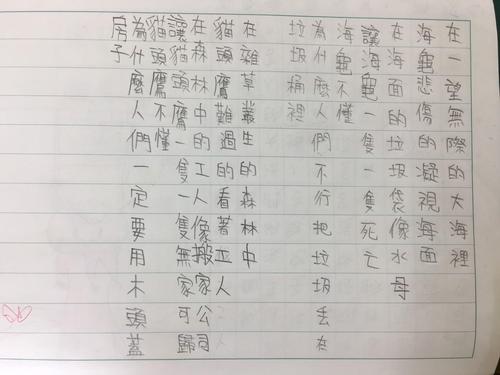 在一望無際的大海裡
海龜悲傷的凝視海面
在海面的垃圾袋像水母
讓海龜一隻一隻死亡
海龜不懂
為什麼人們不行把垃圾丟在
垃圾桶裡
在雜草叢生的森林中
貓頭鷹難過的看著工人
在森林中的工人像搬家公司
讓貓頭鷹一隻一隻無家可歸
貓頭鷹不懂
為什麼人們一定要用木頭蓋
房子